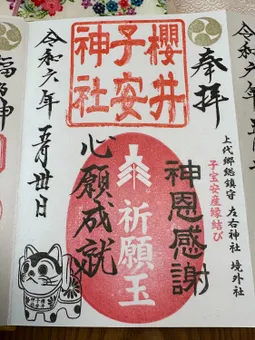 令和六年
奉拝
上代郷総鎮守 左右神社 境外社
子宝安産縁結び
櫻井
子安
神社
神恩感謝
祈願玉
心願成就
令和六年
五月卅日